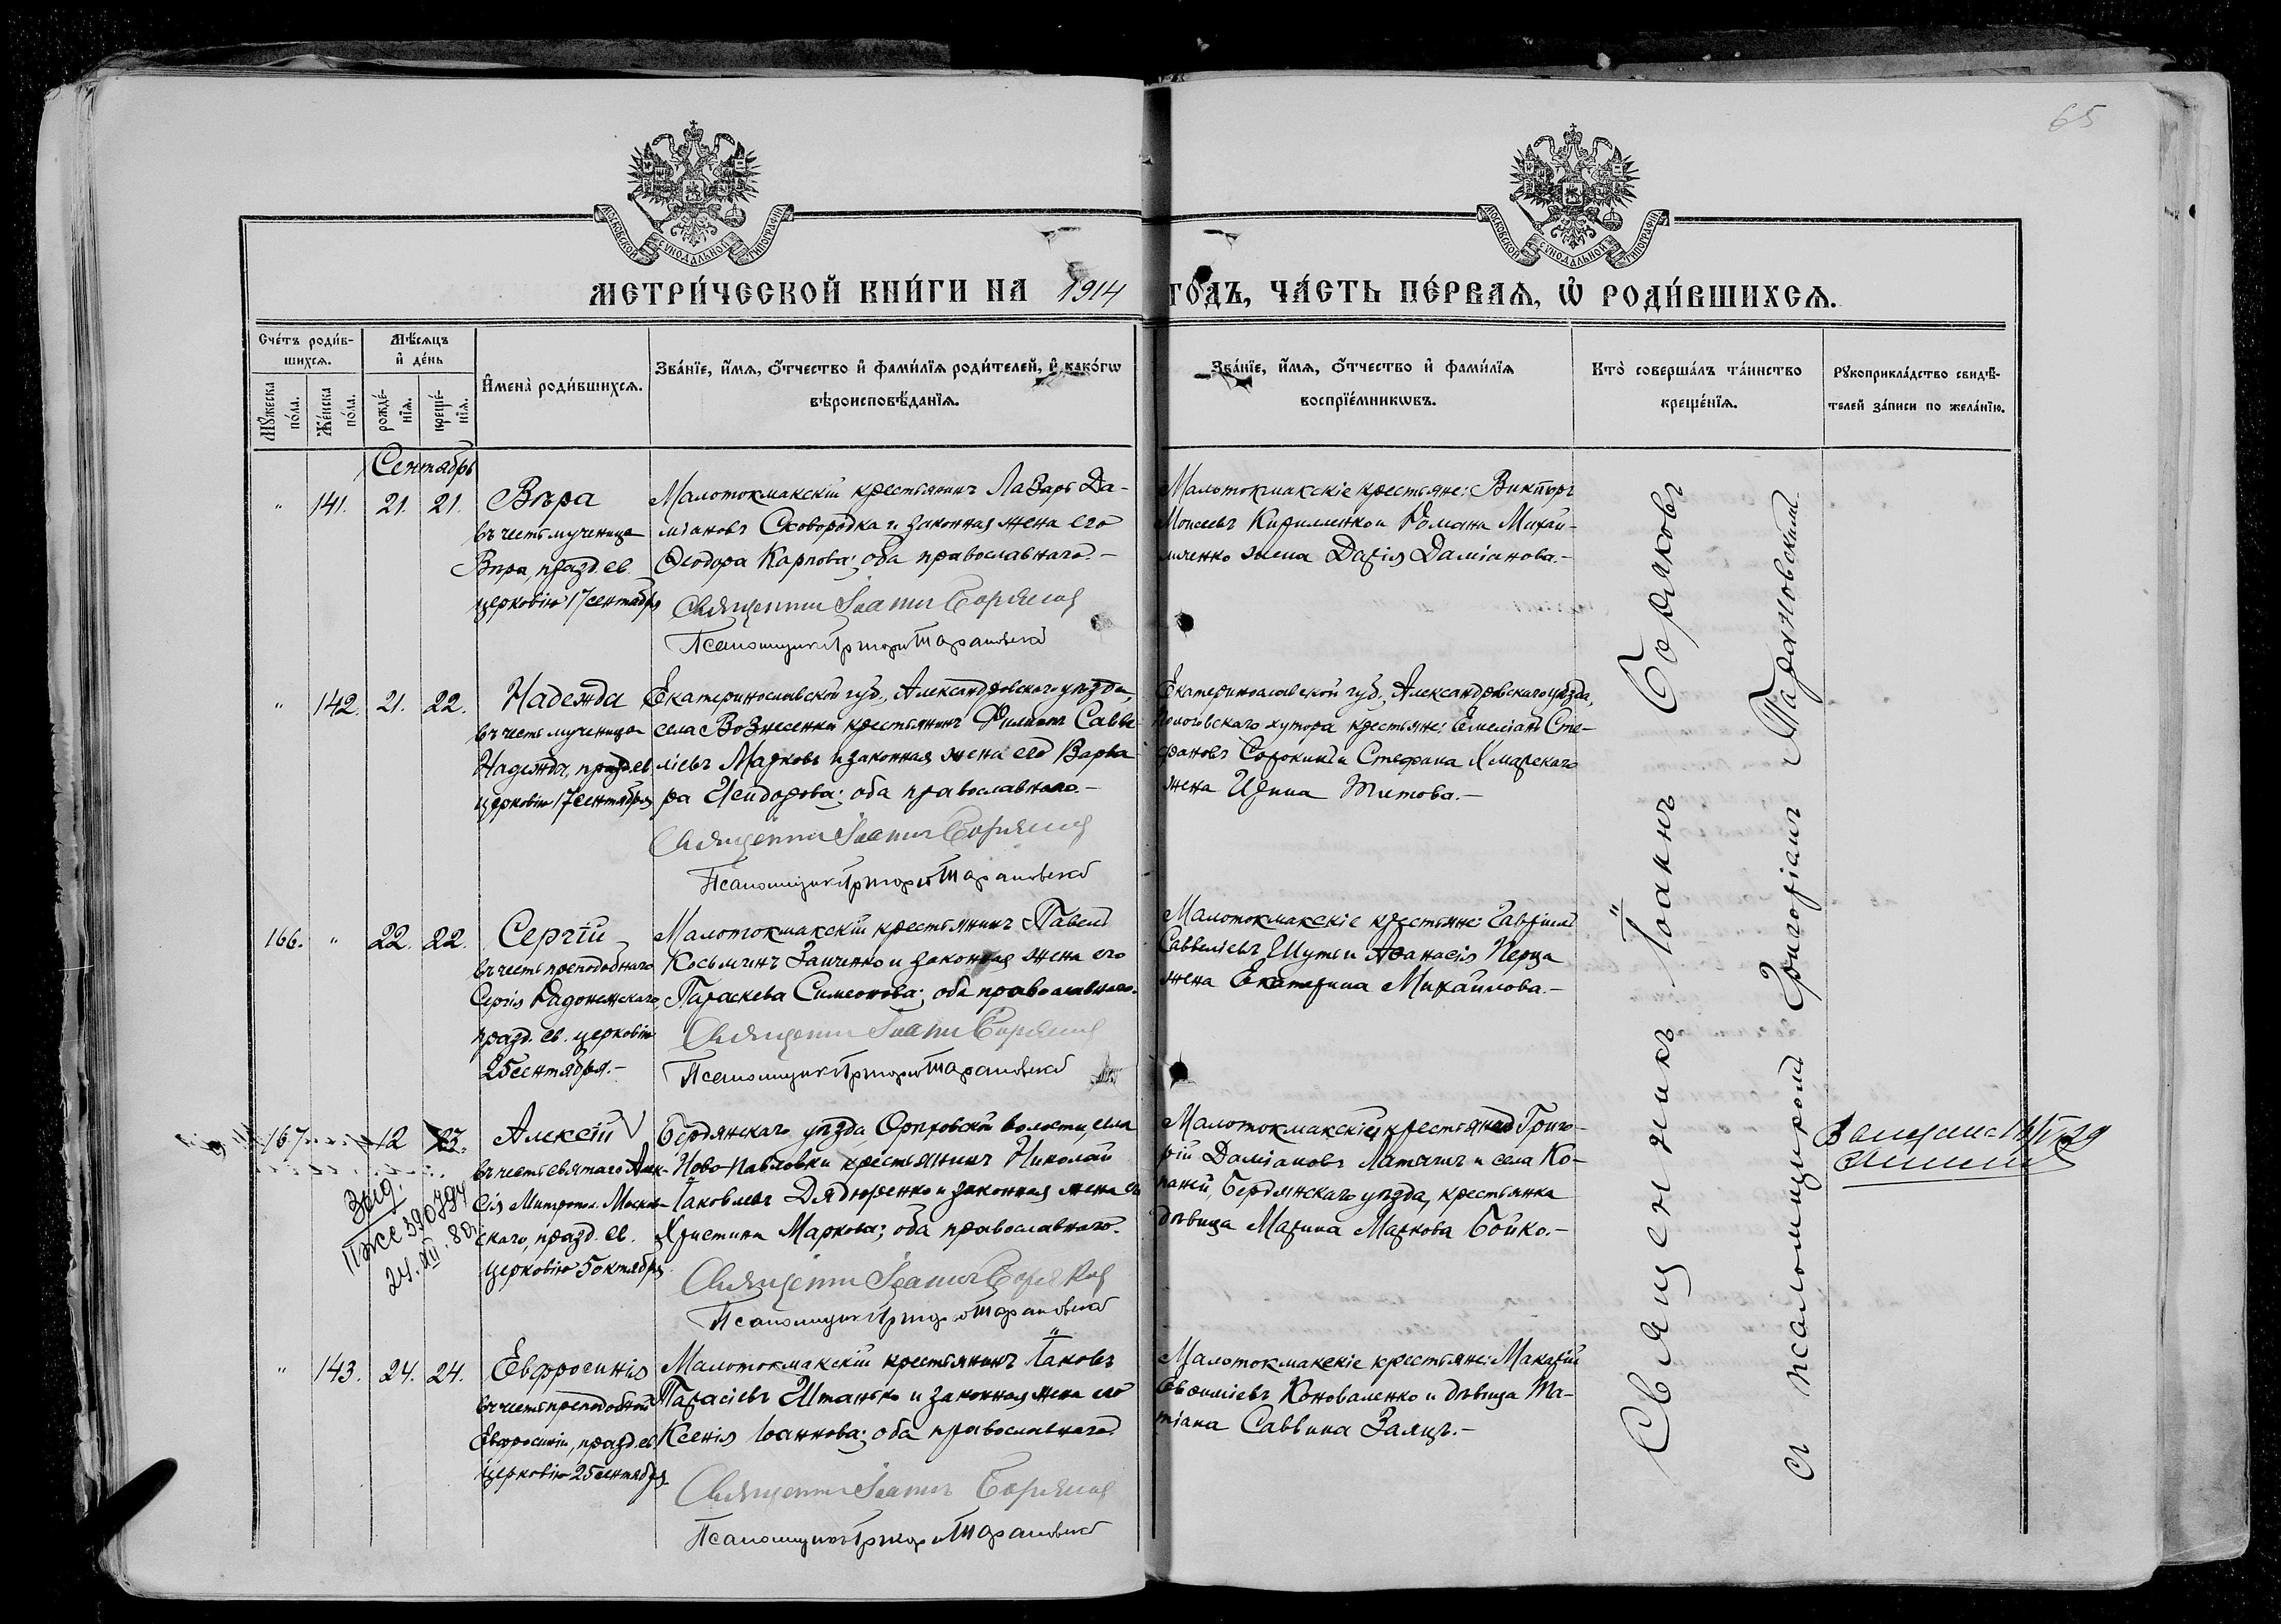 65
МОСКОВСКОЙ СѴНОДАЛЬНОЙ ТИПОГРАФІИ
МОСКОВСКОЙ СѴНОДАЛЬНОЙ ТИПОГРАФІИ
МЕТРИ́ЧЕСКОЙ КНИ́ГИ НА 1914 ГОДЪ, ЧА́СТЬ ПЕ́РВАѦ, Ѡ҆ РОДИ́ВШИХСѦ.
Сче́тъ роди́в-
шихсѧ.
Мꙋ́жеска по́ла.
Же́нска по́ла.
Мѣ́сѧцъ
и҆ де́нь
рожде́-
нїѧ.
креще́-
нїѧ.
И҆мена̀ роди́вшихсѧ.
Зва́нїе, и҆́мѧ, ѻ҆́тчество и҆ фами́лїѧ роди́телей, и҆ како́гѡ
вѣроисповѣ́данїѧ.
Зва́нїе, и҆́мѧ, ѻ҆́тчество и҆ фами́лїѧ
воспрїе́мникѡвъ.
Кто̀ соверша́лъ та́инство
креще́нїѧ.
Рꙋкоприкла́дство свидѣ́-
телей за́писи по жела́нїю.
Сентябрь
" 141. 21. 21.
Вѣра
въ честь мученицы
Вѣра, празд. св.
церковію 17 сентября
Малотокмакскій крестьянинъ Лазарь Да-
міановъ Сковородка и законная жена его
Ѳеодора Карпова; оба православнаго.-
Священникъ Іоаннъ Боряковъ
Псаломщикъ Григорій Тарановскій
Малотокмакскіе крестьяне: Викторъ
Моисеевъ Кириленко и Романа Михай-
ленко жена Дарія Даміанова.-
" 142. 21. 22.
Надежда
въ честь мученицы
Надежда, празд. св.
церковію 17 сентября
Екатеринославской губ., Александровскаго уѣзда,
села Вознесенки крестьянинъ Филиппъ Савве-
ліевъ Марковъ и законная жена его Варва-
ра Исидорова; оба православнаго.-
Священникъ Іоаннъ Боряковъ
Псаломщикъ Григорій Тарановскій
Екатеринославской губ., Александровскаго уѣзда,
Пологовскаго хутора крестьяне: Емеліанъ Сте-
фановъ Сорокинъ и Стефана Хмарскаго
жена Ирина Титова.-
166. " 22. 22.
Сергій
въ честь преподобнаго
Сергія Радонежскаго,
празд. св. церковію
25 сентября.-
Малотокмакскій крестьянинъ Павелъ
Косьминъ Заиченко и законная жена его
Параскева Симеонова; оба православнаго.
Священникъ Іоаннъ Боряковъ
Псаломщикъ Григорій Тарановскій
Малотокмакскіе крестьяне: Гавріилъ
Саввеліевъ Шутъ и Аѳанасія Перца
жена Екатерина Михаилова.-
167. 12 23.
Алексій
въ честь святаго Алек-
сія Митропол. Москов-
скаго, празд. св.
церковію 5 октября
Бердянскаго уѣзда Орѣховской волости, села
Ново-Павловки крестьянинъ Николай
Іаковлевъ Дядюренко и законная жена его
Христина Маркова; оба православнаго.
Священникъ Іоаннъ Боряковъ
Псаломщикъ Григорій Тарановскій
Малотокмакскій крестьянинъ Григо-
рій Даміановъ Латышъ и села Ко-
паней, Бердянскаго уѣзда, крестьянка
дѣвица Марина Маркова Бойко.-
390794
24.XII.80
" 143. 24. 24.
Евфросинія
въ честь преподобной
Евфросиніи, празд. св.
церковію 25 сентября.
Малотокмакскій крестьянинъ Іаковъ
Тарасіевъ Штанько и законная жена его
Ксенія Іоаннова; оба православнаго
Священникъ Іоаннъ Боряковъ
Псаломщикъ Григорій Тарановскій
Малотокмакскіе крестьяне: Макарій
Евѳиміевъ Коноваленко и дѣвица Та-
тіана Саввина Заяцъ.-
Священникъ Іоаннъ Боряковъ
съ псаломщикомъ Григоріемъ Тарановскимъ